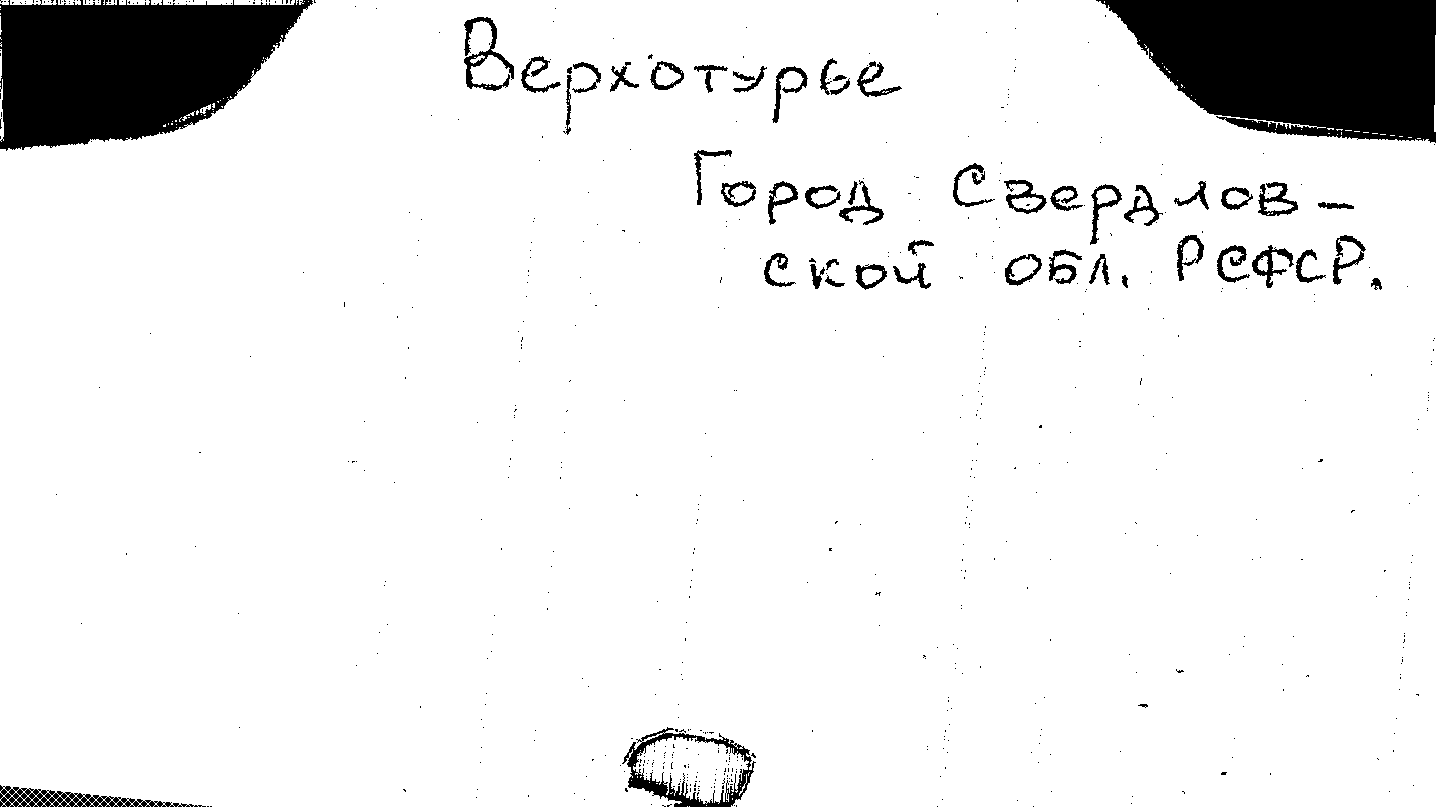 Верхотурье
Город Свердлов-
ской обл. РСФСР.